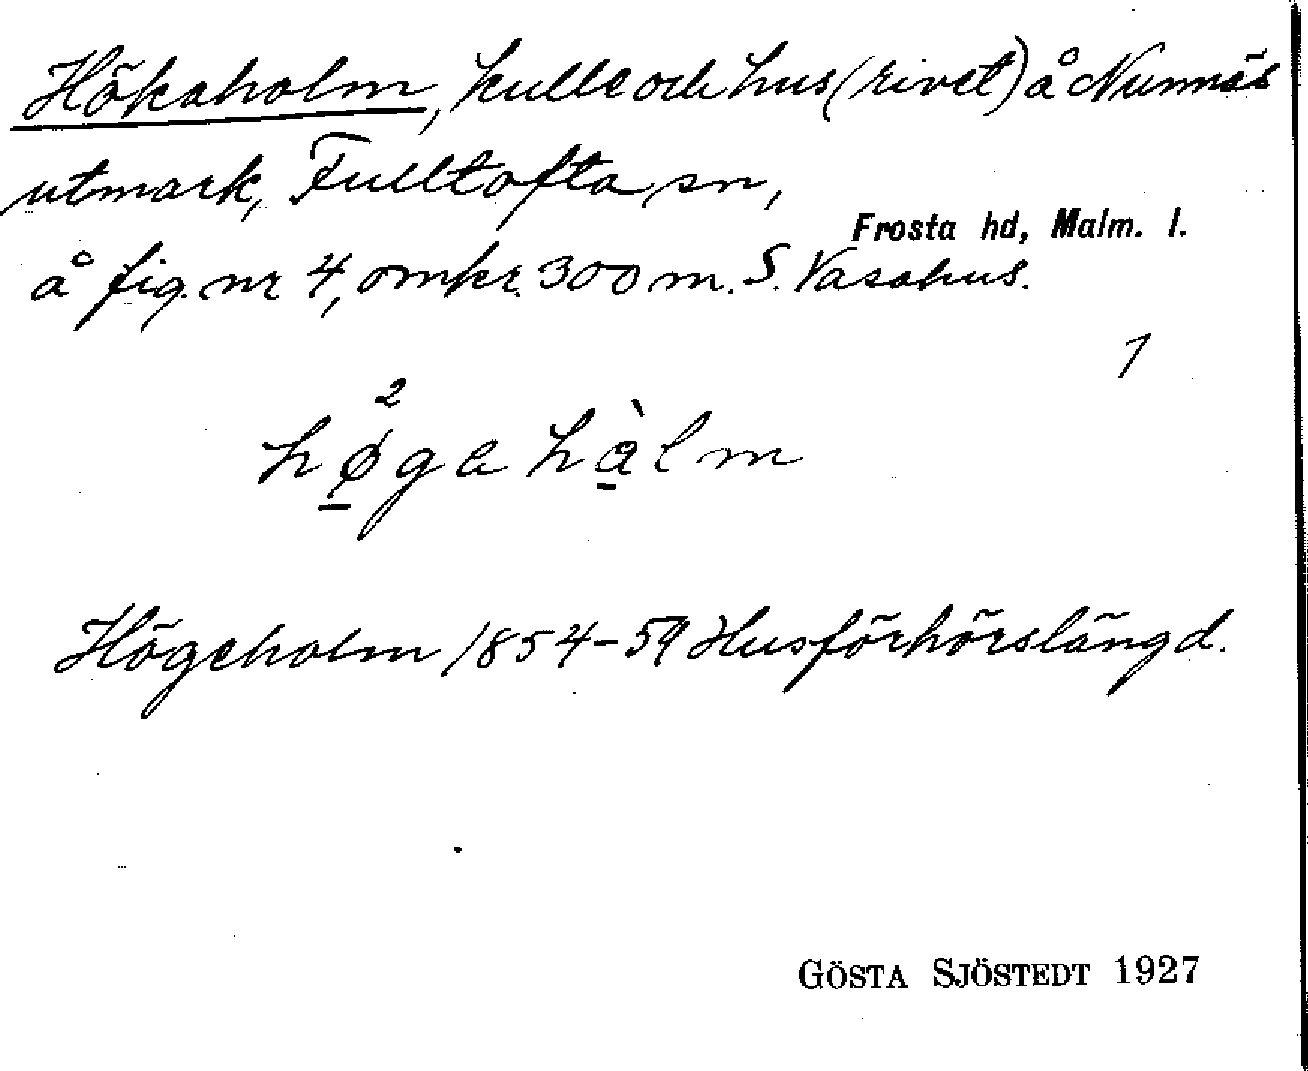 Hökaholm, kulle och hus (rivet) å Nunnäs
utmark, Fulltofta sn,
Frosta hd, Malm. l.
å fig. nr 4, omkr. 300 m. S. Vasahus.
1
2
høgahàlm
Högeholm 1854-59 Husförhörslängd.
GÖSTA SJÖSTEDT 1927